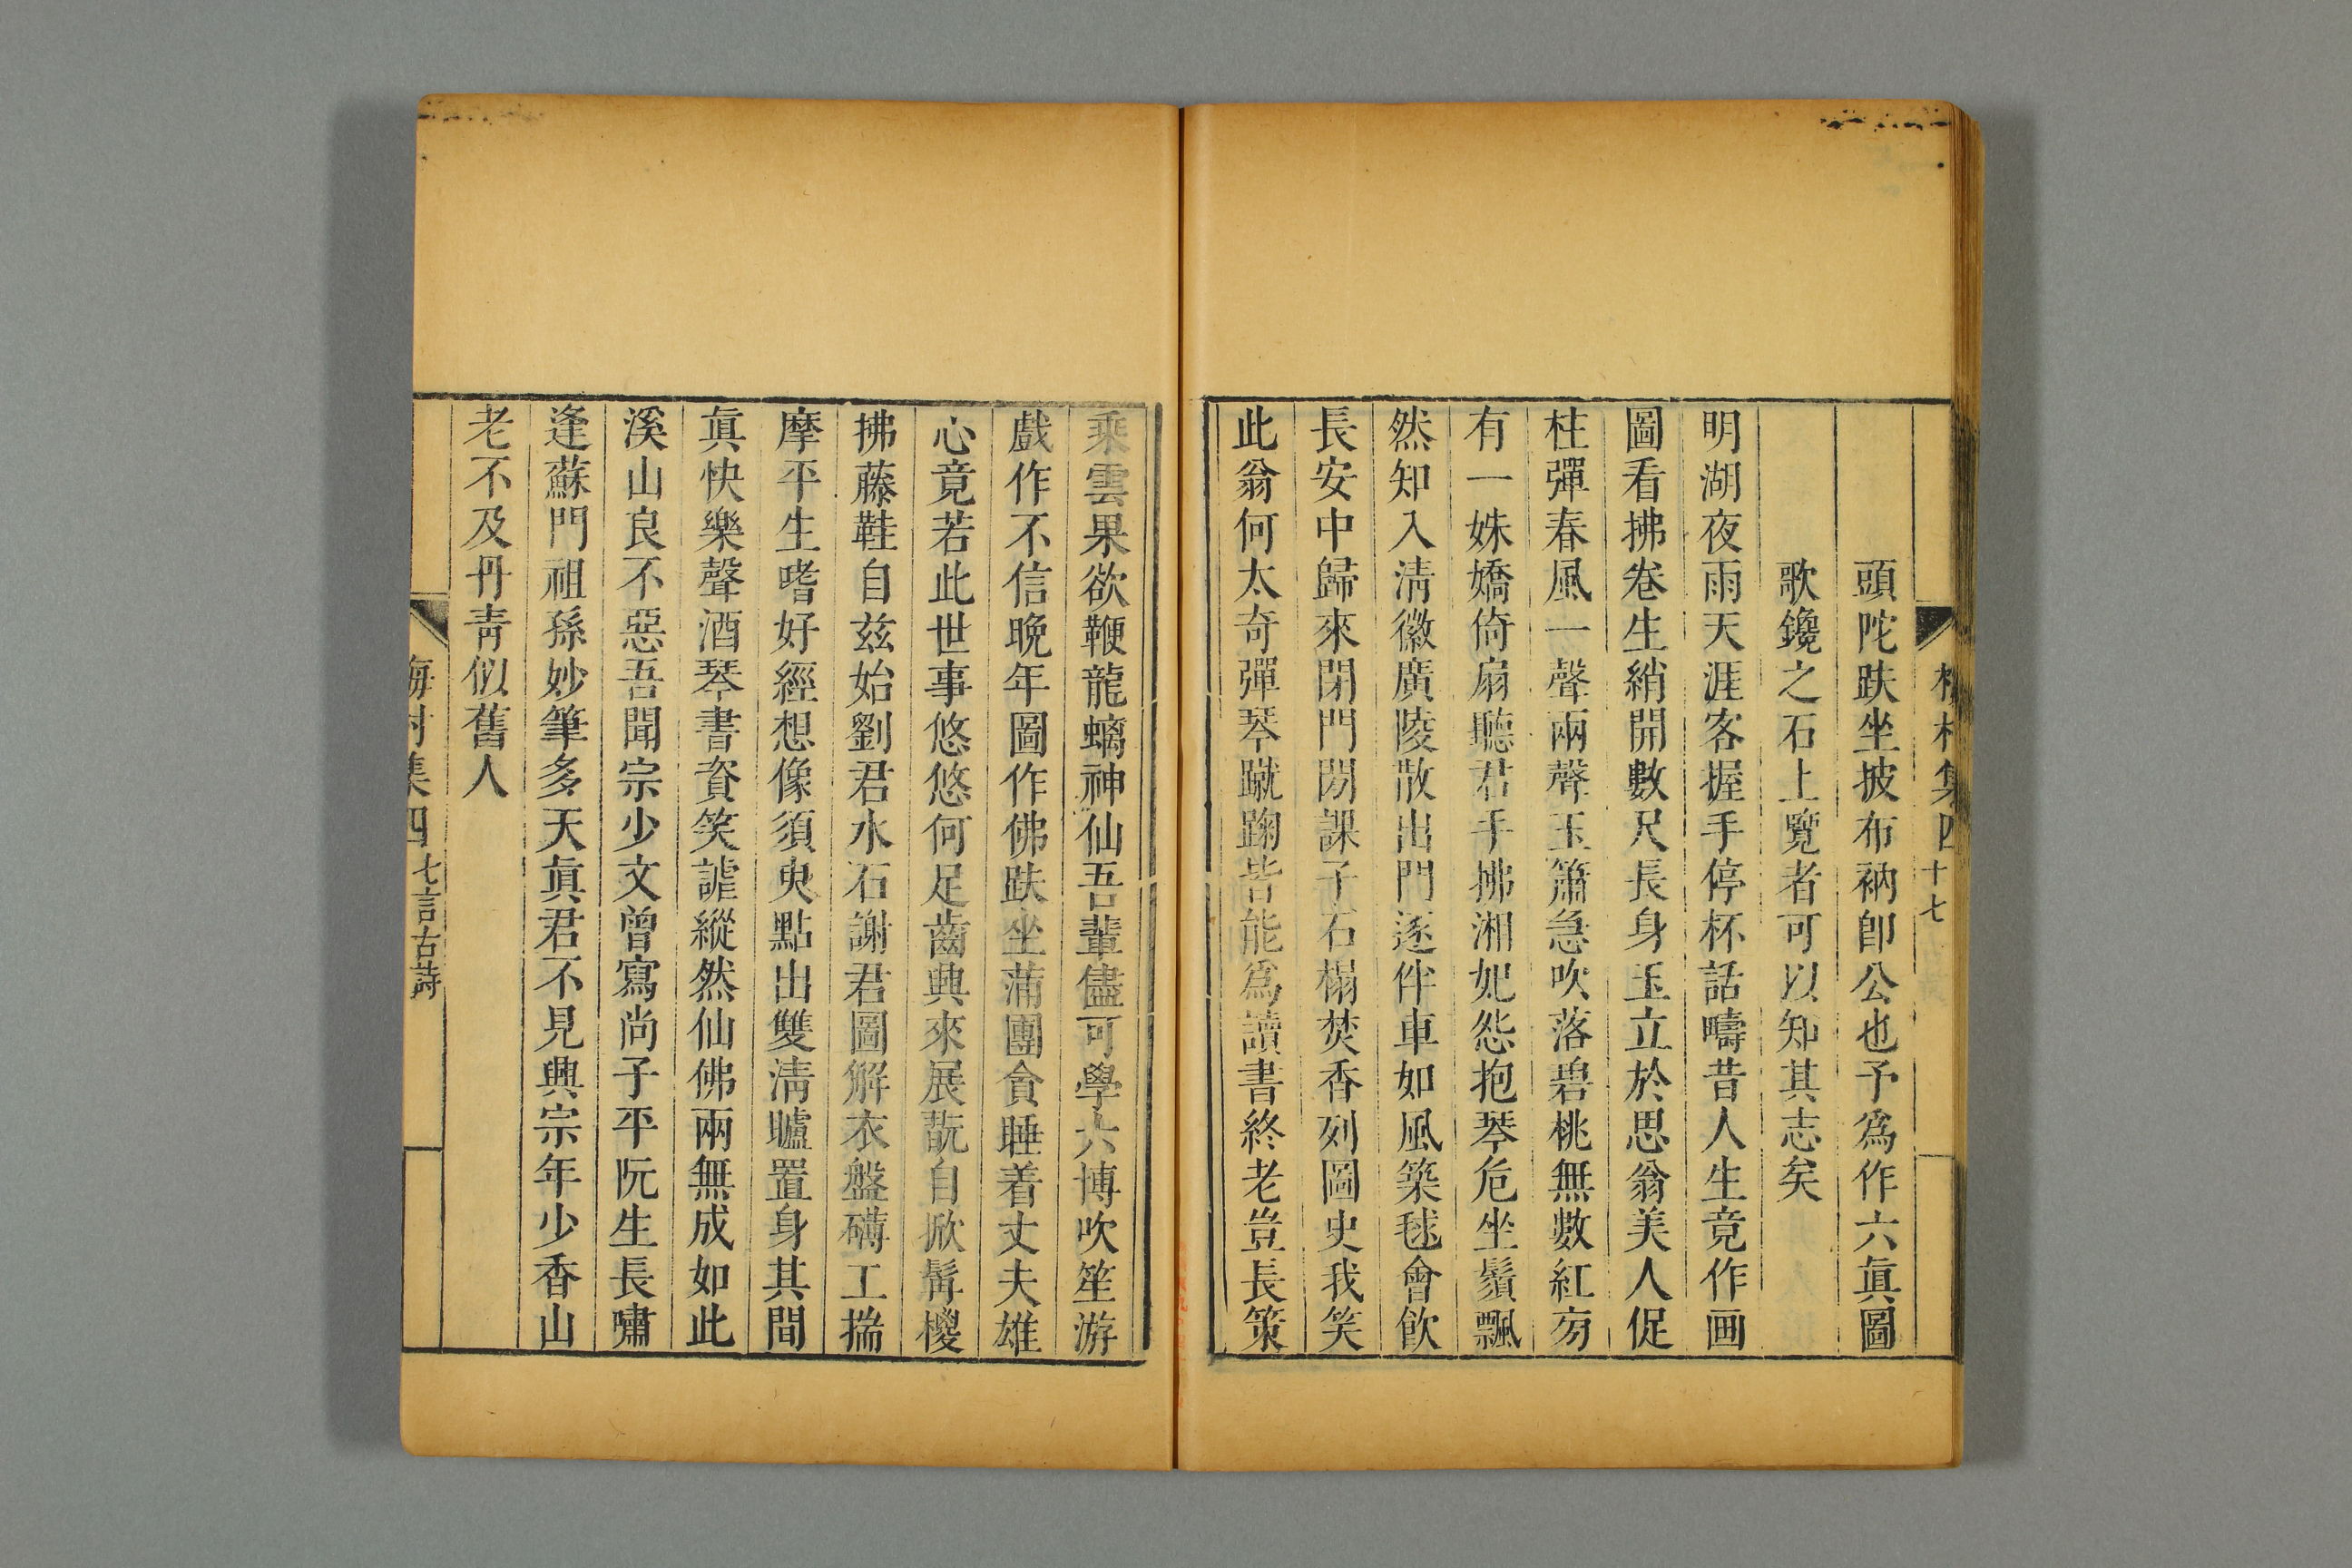 集四 十七
頭陀趺坐披布衲卽公也予爲作六眞圖
歌鑱之石上覽者可以知其志矣
明湖夜雨天涯客握手停杯話疇昔人生竟作画
圖看拂卷生綃開數尺長身玉立於思翁美人促
柱彈春風一聲兩聲玉簫急吹落碧桃無數紅旁
有一姝嬌倚扇聽君手拂湘妃怨抱琴危坐鬚飄
然知入淸徽廣陵散出門逐伴車如風築毬會飮
長安中歸來閉門閱課子石榻焚香列圖史我笑
此翁何太奇彈琴蹴踘皆能爲讀書終老豈長策
乘雲果欲鞭龍螭神仙吾輩儘可學六博吹笙游
戲作不信晚年圖作佛趺坐蒲團貪睡着丈夫雄
心竟若此世事悠悠何足齒興來展翫自掀髯椶
拂藤鞋自兹始劉君水石謝君圖解衣盤礴工揣
摩平生嗜好經想像須臾點出雙淸矑置身其間
眞快樂聲酒琴書資笑謔縱然仙佛兩無成如此
溪山良不惡吾聞宗少文曾寫尚子平阮生長嘯
逢蘇門祖孫妙筆多天眞君不見興宗年少香山
老不及丹靑似舊人
海村集四 七言古詩